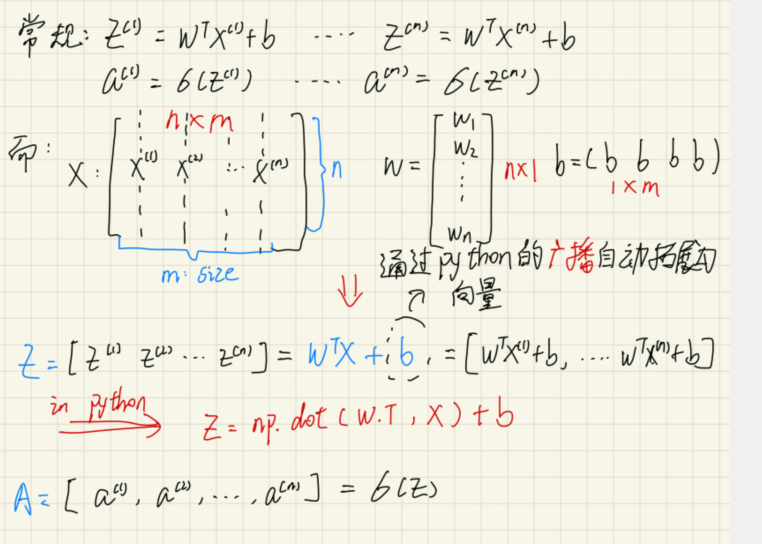 常规: Z⁽¹⁾ = WᵀX⁽¹⁾+b ···· Z⁽ᵐ⁾ = WᵀX⁽ᵐ⁾+b
a⁽¹⁾ = б(Z⁽¹⁾) ···· a⁽ᵐ⁾ = б(Z⁽ᵐ⁾)
n×m
而: X: [ X⁽¹⁾ X⁽²⁾ ··· X⁽ᵐ⁾ ] n W = [ W₁ W₂ ⋮ Wₙ ] n×1 b=(b b b b)
1×m
m: size
通过python的广播自动拓展为
向量
⇓
Z = [Z⁽¹⁾ Z⁽²⁾ ··· Z⁽ᵐ⁾] = WᵀX + b = [WᵀX⁽¹⁾+b, ···· WᵀX⁽ᵐ⁾+b]
in python
Z = np.dot(W.T, X) + b
A = [a⁽¹⁾, a⁽²⁾, ···, a⁽ᵐ⁾] = б(Z)